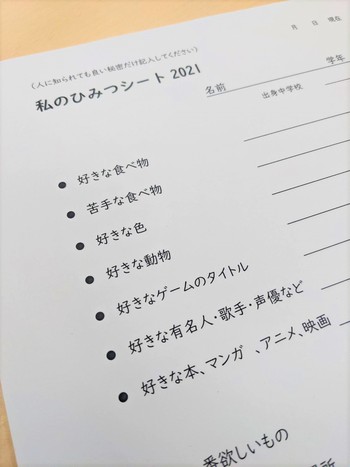 月 日 現在
(人に知られても良い秘密だけ記入してください)
私のひみつシート 2021
名前 学年
出身中学校
● 好きな食べ物
● 苦手な食べ物
● 好きな色
● 好きな動物
● 好きなゲームのタイトル
● 好きな有名人・歌手・声優など
● 好きな本、マンガ、アニメ、映画
番欲しいもの